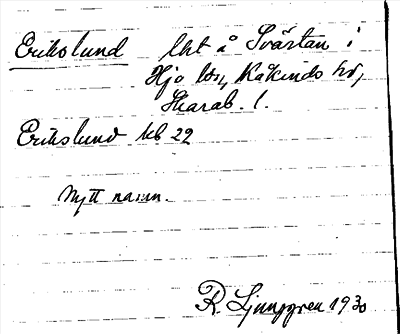 Erikslund lht å Svärtan i
Hjo lfs, Kåkinds hd,
Skarab. l.
Erikslund kb 22
Nytt namn.
R. Ljunggren 1930